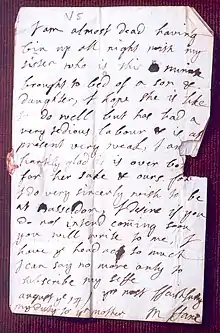 V5
I am almost dead having
bin up all night with my
sister who is this munate
brought to bed of a son &
daughter, I hope she is like
to do well but has had a
very tedious labour & is at
present very weak, I am
glad it is over both
for her sake & ours for
I do very sincerly wish to be
at I desire if you
do not intend coming soon
you will write to me I
have head so much
I can say no more only to
subscribe my selfe
august ye 17 yrs most
my Duty to yr mother M